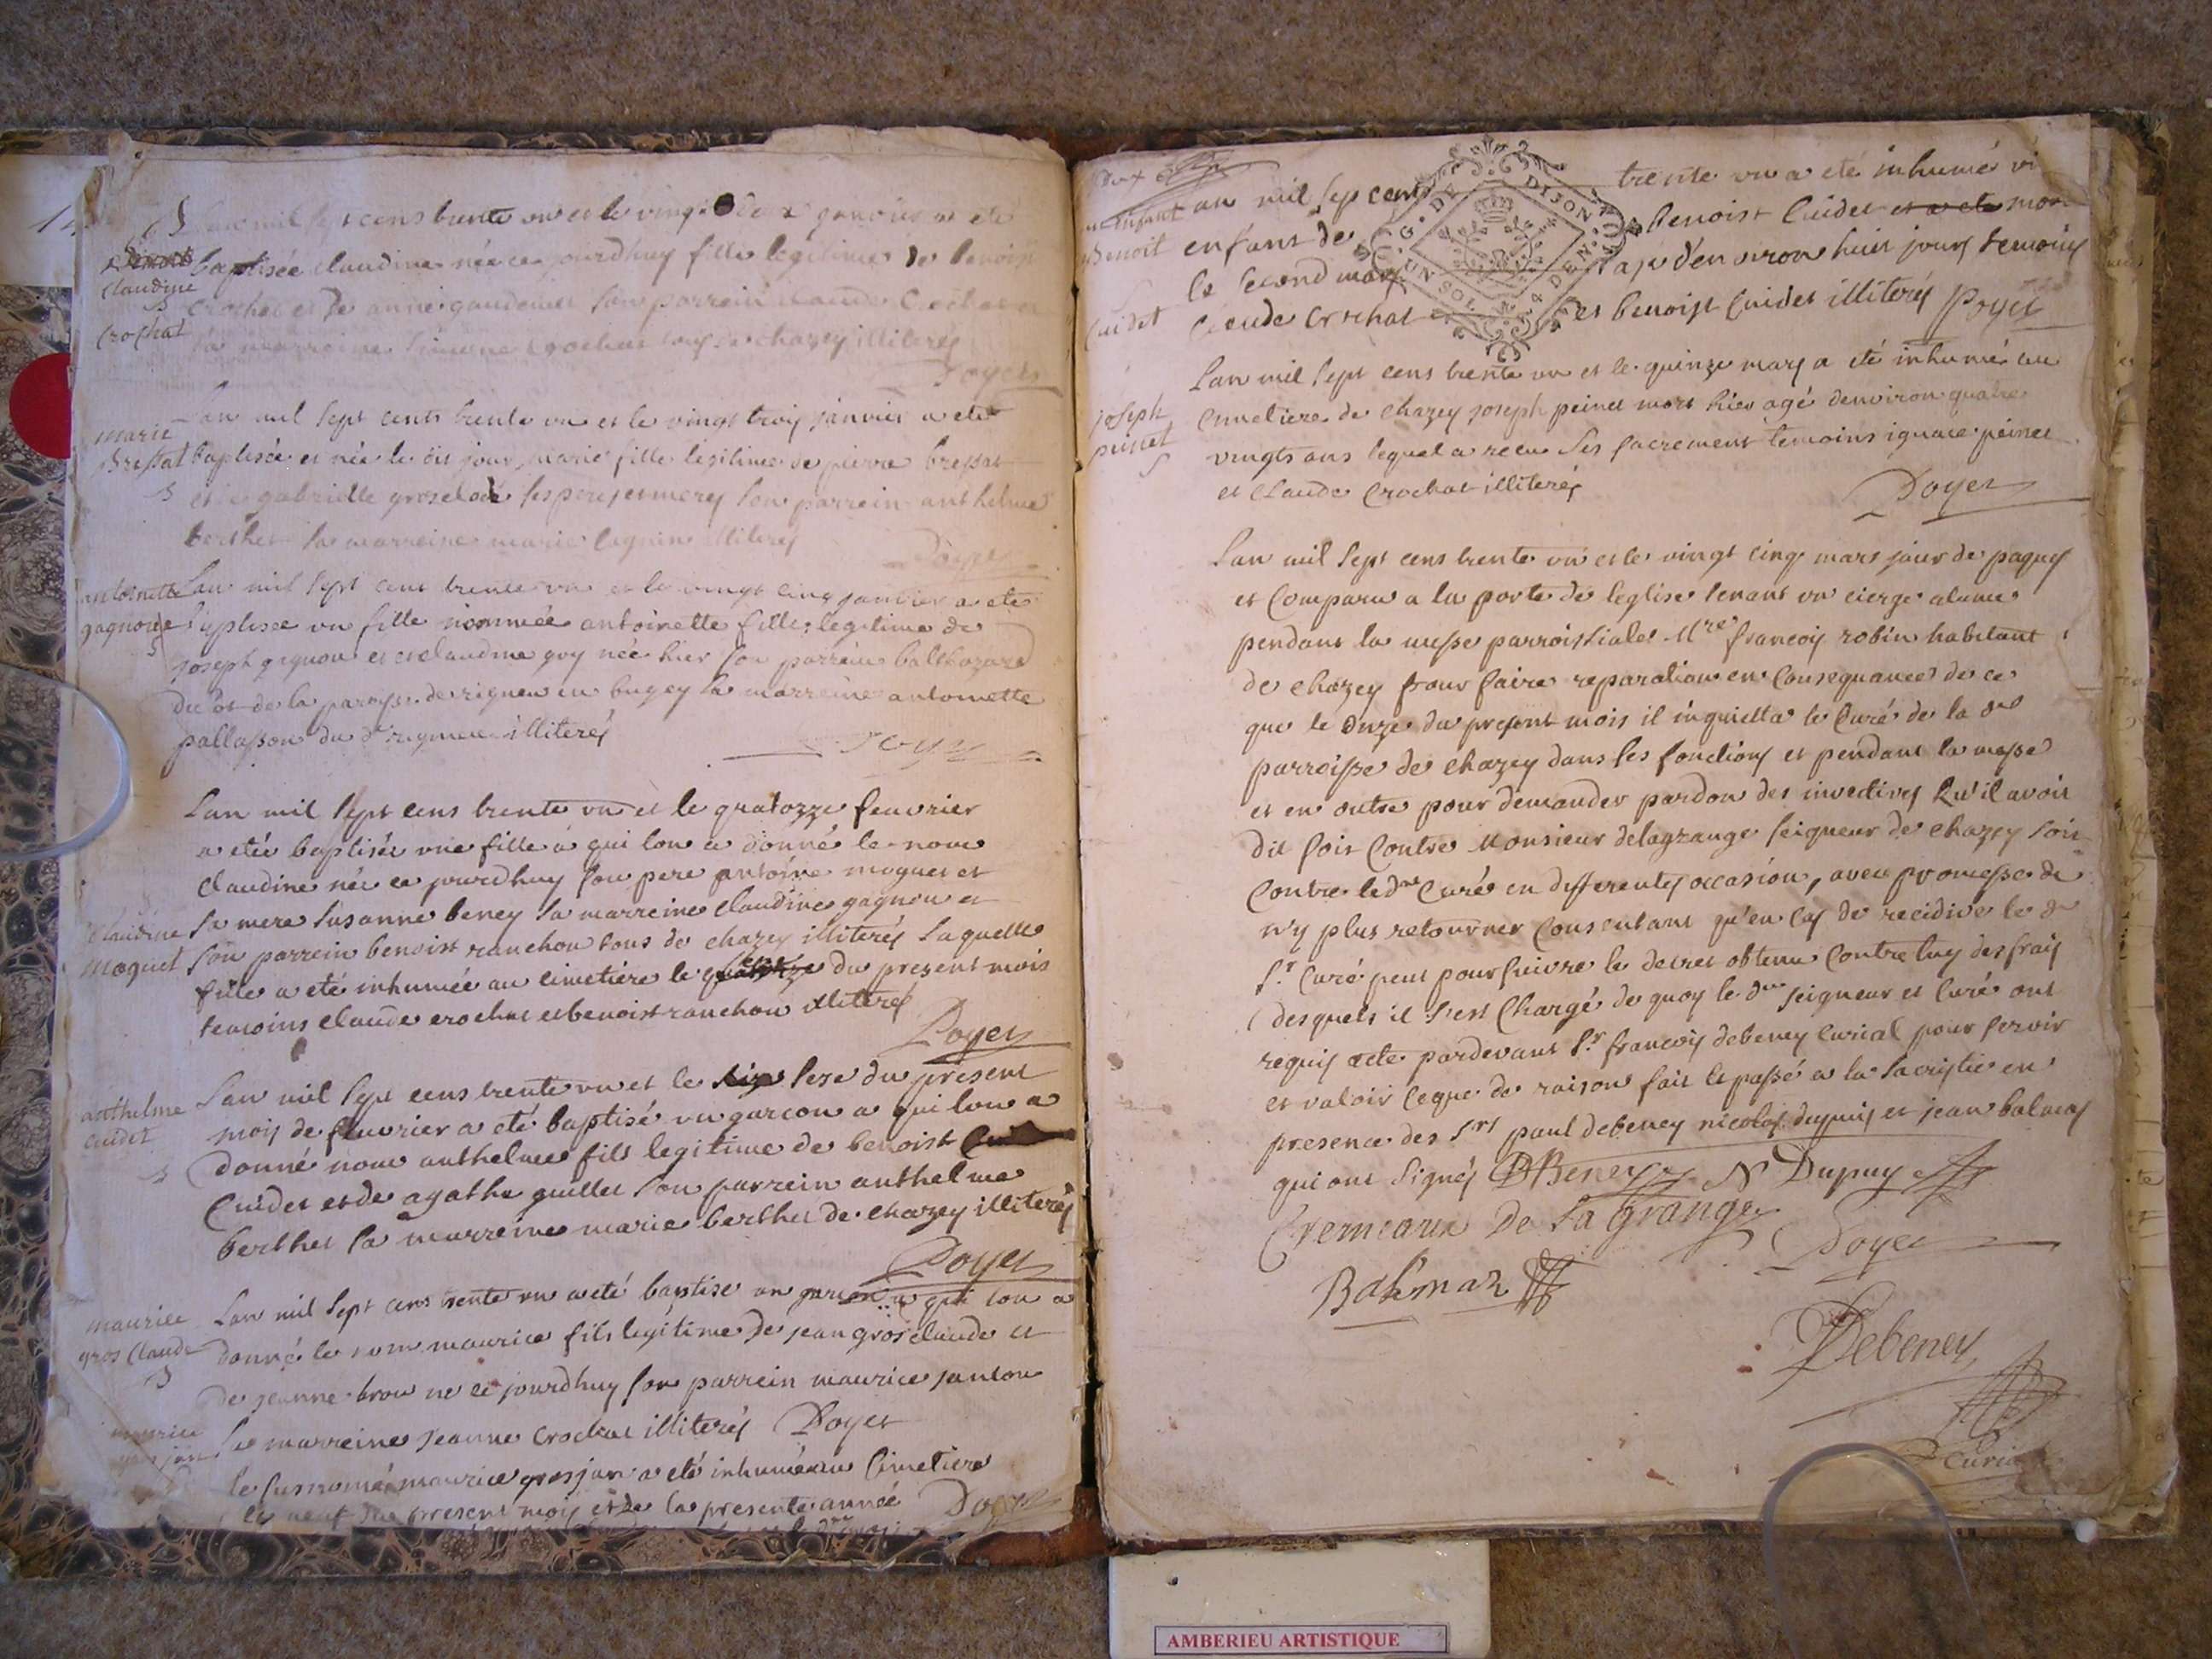 Lan mil sept cens trente un et le vingt deux janvier a eté
baptisée claudine née ce jourdhuy fille legitime de benoist
crochat et de anne gaudenet son parrein claude Crochat et
sa marreine simone crochat tous de chazey illiterés
Poyet
claudine
Crochat
Lan mil sept cents trente un et le vingt trois janvier a eté
marie
Bressat
baptisée et née le dit jour marie fille legitime de pierre bressat
et de gabrielle groselode ses peres et meres son parrein anthelme
berthet sa marreine marie illiterés
Poyet
antoinette
gagnon
Lan mil sept cent trente un et le vingt cinq janvier a eté
baptisée un fille nommée antoinette fille legitime de
joseph gagnon et claudine goy née hier son parrein balthazard
de la paroisse de rigneu en bugey sa marreine antoinette
pallasson du dt rigneu illiterés
Poyet
Lan mil sept cens trente un et le quatozze feuvrier
a eteé baptisée une fille a qui lon a donné le nom
claudine née ce jourdhuy son pere antoine moguet et
sa mere susanne beney sa marreine claudine gagnon et
claudine
moguet
son parrein benoist ranchon tous de chazey illiterés laquelle
fille a eté inhumée au cimetiere le du present mois
temoins claude crochat et benoist ranchon illiterés
Poyet
anthelme
cuidet
Lan mil sept cens trente un et le seze du present
mois de feuvrier a eté baptisé un garcon a qui lon a
donné nom anthelme fils legitime de benoist
Cuidet et de agathe guillet son parrein anthelme
berthet sa marreine marie berthet de chazey illiterés
Poyet
maurice
gros Claude
Lan mil sept cens trente un a eté baptise un garcon a qui lon a
donné le nom maurice fils legitime de jean gros claude et
de jeanne brou ne ce jourdhuy son parrein maurice janton
sa marreine jeanne crochat illiterés Poyet
maurice
gros jan
le susnomé maurice grosjan a eté inhumé au Cimetiere
le neuf du present mois et de la presente année Poyet
an mil sep cens trente un a eté inhumé vi
enfant de benoist Cuidet et a ete mort
le second mars aje d'environ huit jours temoins
Claude Crochat et benoist Cuidet illiterés Poyet
Benoit
Cuidet
G. DE DIJON
UN SOL 4 DEN.
Lan mil sept cens trente un et le quinze mars a eté inhumé au
joseph
peinet
Cimetiere de Chazey joseph peinet mort hier agé denviron quatre
vingts ans lequel a receu ses sacrement temoins ignace peinet
et Claude Crochat illiterés
Poyet
Lan mil sept cens trente un et le vingt cinq mars jour de paques
et Comparu a la porte de leglise tenant un cierge alumé
pendant la messe parroissiale Mre francois robin habitant
de chazey pour faire reparation en Consequance de ce
que le onze du present mois il inquietta le Curé de la de
parroisse de chazey dans ses fonctions et pendant la messe
et en outre pour demander pardon des invectives Qu'il avoit
dit soit Contre Monsieur delagrange seigneur de chazey soit
Contre le dt Curé en differentes occasion, avec promesse de
n'y plus retourner Consentant qu'en Cas de recidive le dt
sr. Curé peut poursuivre le decret obtenu Contre luy des frais
desquels il s'est Chargé de quoy le dt seigneur et Curé ont
requis acte pardevant sr. francois debeney Curial pour servir
et valoir ce que de raison fait et passé a la sacristie en
presence des srs paul debeney nicolas dupuis et jean balmas
qui ont signés PBeney N Dupuy
Cremeaux De La Grange
Poyet
Balmaz
Debeney
Curial
AMBERIEU ARTISTIQUE